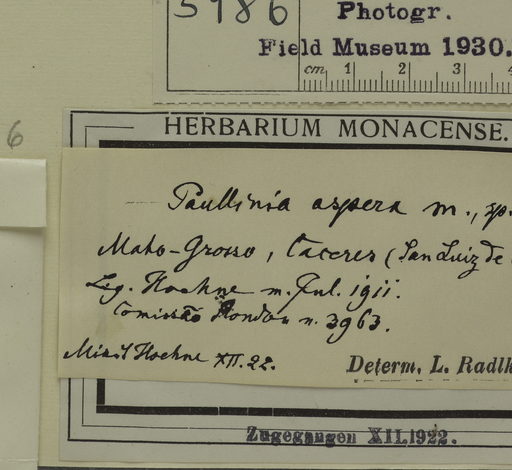 5986
Photogr.
Field Museum 1930.
cm 1 2 3 4
6
HERBARIUM MONACENSE.
Paullinia aspera m., sp.
Mato-Grosso, Caceres (San Luiz de
Leg. Hoehne m. Jul. 1911.
Comissão Rondon n. 3963.
Misit Hoehne XII. 22.
Determ. L. Radlk
Zugegangen XII.1922.